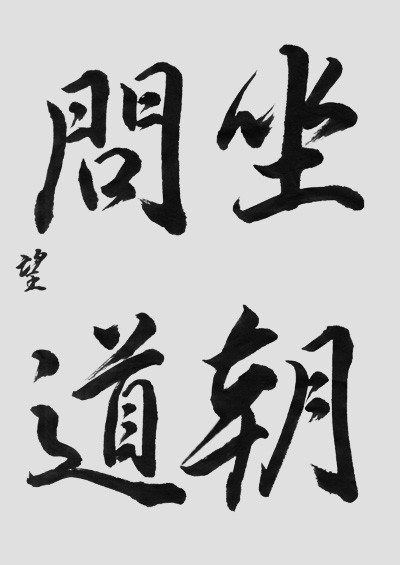 坐朝
問道
望